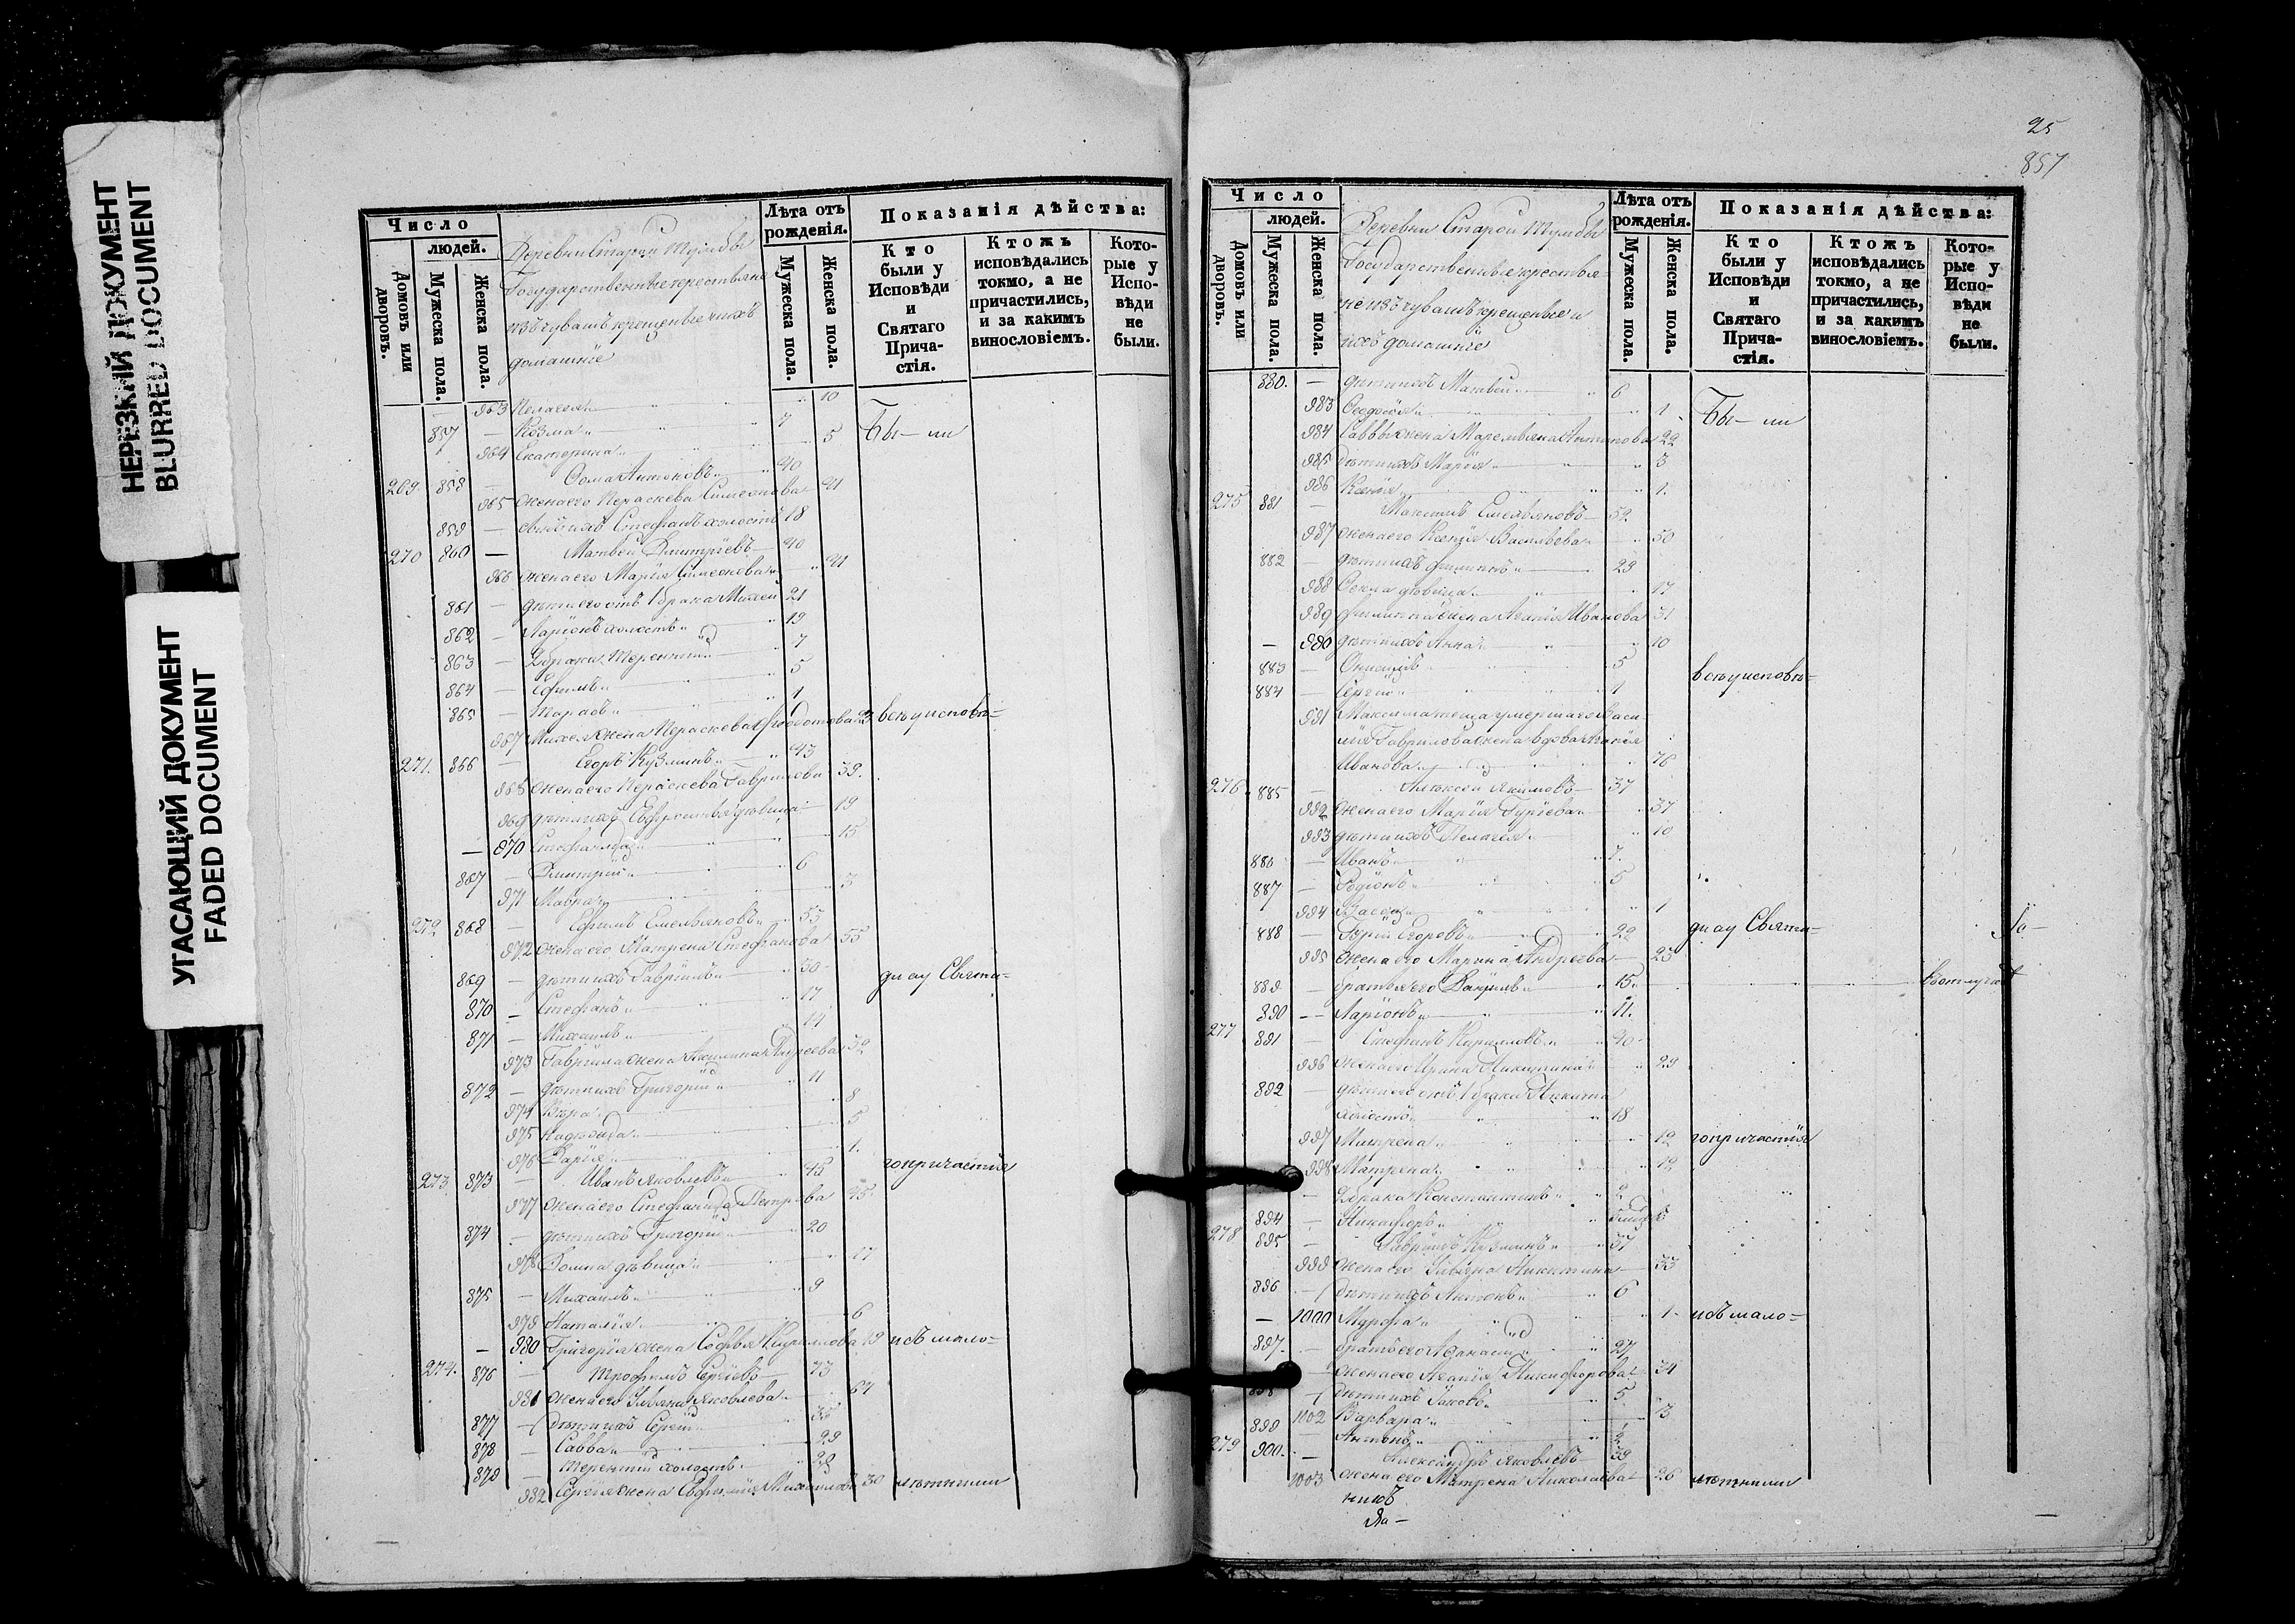 НЕРЕЗКИЙ ДОКУМЕНТ
BLURRED DOCUMENT
УГАСАЮЩИЙ ДОКУМЕНТ
FADED DOCUMENT
Число
людей.
Домовъ или дворовъ.
Мужеска пола.
Женска пола.
Деревни Старой
Государственные крестьяне
изъ чувашъ крещеные и ихъ
домашніе
Лѣта отъ рожденія.
Мужеска пола.
Женска пола.
Показанія дѣйства:
Кто были у Исповѣди и Святаго Прича-стія.
Ктожъ исповѣдались токмо, а не причастились, и за какимъ винословіемъ.
Кото-рые у Испо-вѣди не были.
963 Пелагея 10
857 — Козма 7 Бы — ли
964 Екатерина 5
269 858 — Ѳома Антоновъ 40
965 жена его Параскева Симеонова 41
859 — сынъ ихъ Стефанъ холостъ 18
270 860 — Матвей Дмитріевъ 40
966 жена его Марія Симеонова 41
861 — дѣти его отъ 1 брака Михей 21
862 — Ларіонъ холостъ 19
863 — 2 брака Терентій 7
864 — Ефимъ 5
865 — Тарасъ 1
967 Михея жена Параскева Ѳеодотова 23 всѣ у исповѣ=
271. 866 — Егоръ Кузминъ 43
968 жена его Параскева Гаврилова 39.
969 дѣти ихъ Евфросинья дѣвица 19
— 970 Стефанида 15
867 — Дмитрій 6
971 Мавра 3
272 868 — Ефимъ Емельяновъ 55
972 жена его Матрена Стефанова 55
869 — дѣти ихъ Гаврилъ 30 ди и у Свята=
870 — Стефанъ 17
871 — Михаилъ 14
973 Гаврила жена Акилина Андреева 32
872 — дѣти ихъ Григорій 11
974 Вѣра 8
975 Надежда 5
976 Дарія 1.
273 873 — Иванъ Яковлевъ 45 го причастія
977 жена его Стефанида Петрова 45
874 — дѣти ихъ Григорій 20
978 Домна дѣвица 17
875 — Михаилъ 9
979 Наталія 6
— 980 Григорія жена Софья Кирилова 19 изъ мало=
274. 876 — Трофимъ Сергіевъ 73
981 жена его Ульяна Яковлева 64
877 — дѣти ихъ Сергій 35
878 — Савва 29
879 — Терентій холостъ
982 Сергія жена Михайлова 30 лѣтними
25
857
Число
людей.
Домовъ или дворовъ.
Мужеска пола.
Женска пола.
Деревни Старой
Государственные крестья=
не изъ чувашъ крещеные и
ихъ домашніе
Лѣта отъ рожденія.
Мужеска пола.
Женска пола.
Показанія дѣйства:
Кто были у Исповѣди и Святаго Прича-стія.
Ктожъ исповѣдались токмо, а не причастились, и за какимъ винословіемъ.
Кото-рые у Испо-вѣди не были.
880. — дѣти ихъ Матвей 6
983 Ѳедосія 1 Бы — ли
984 Саввы жена Маремьяна 22
985 дѣти ихъ Марія 3
986 Ксенія 1.
275 881 — Максимъ Емельяновъ 52
987 жена его Ксенія Васильева 50
882 — дѣти ихъ Филиппъ 29
988 Ѳекла дѣвица 17
989 Филиппа жена Агапія Иванова 31
— 990 дѣти ихъ Анна 10
883 — Онисимъ 5 всѣ у исповѣ=
884 — Сергій 1
991 Максима теща умершаго Васи
лія Гаврилова жена вдова
Иванова 76
276 885 — Алексей Якимовъ 37
992 жена его Марія Гуріева 37
993 дѣти ихъ Пелагея 10
886 — Иванъ 7.
887 — Родіонъ 5
994 Васса 1
888 — Гурій Егоровъ 22 ди и у Святи=
995 жена его Марина Андреева 25
889 — братья его Данилъ 15
890 — Ларіонъ 11.
277 891 — Стефанъ Кириловъ 40
996 жена его Ирина Никитина 29
892 — дѣти его отъ 1 брака Никита
холостъ 18
997 Матрена 12 го причастія
998 Матрена 12
— 2 брака Константинъ 2
894 — Никифоръ
278 895 — Гаврилъ Кузминъ 37
999 жена его Никитина 33
896 — дѣти ихъ Антонъ 6
— 1000 Марфа 1 изъ мало=
897. — братъ его Афанасій 27
— жена его Агапія Никифорова 34
898 — дѣти ихъ Яковъ 5
1002 Варвара 3
899 — Антонъ
279 900. — Александръ Яковлевъ 39
1003 жена его Матрена Николаева 26 лѣтними
никъ
Яа —